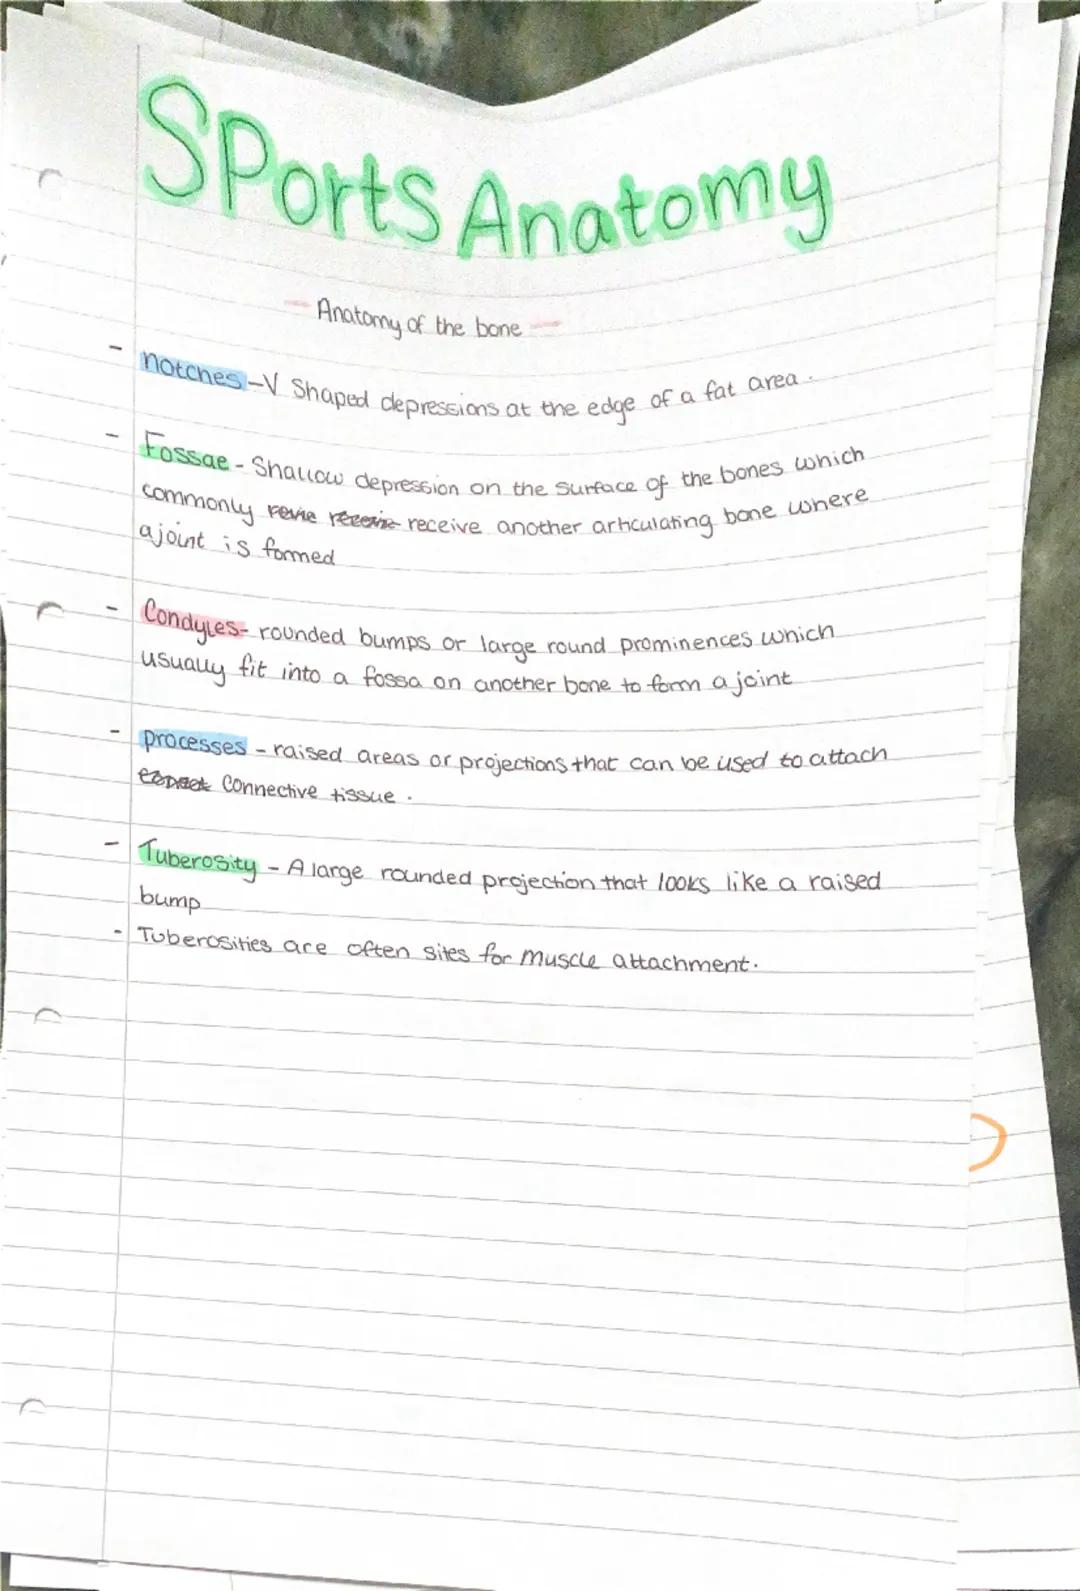 SPorts Anatomy
- Anatomy of the bone -
- notches - V Shaped depressions at the edge of a fat area.
- Fossae - Shallow depression on the surface of the bones which
commonly revie receive receive another articulating bone where
a joint is formed
- Condyles - rounded bumps or large round prominences which
usually fit into a fossa on another bone to form a joint
- processes - raised areas or projections that can be used to attach
Connective tissue.
- Tuberosity - A large rounded projection that looks like a raised
bump
- Tuberosities are often sites for muscle attachment.